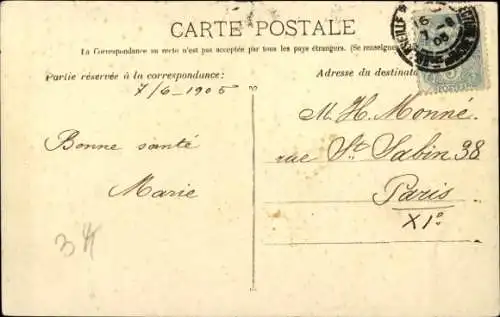 CARTE POSTALE
La Correspondance au recto n'est pas acceptée par tous les pays étrangers. (Se renseigner
Partie réservée à la correspondance:
7/6_1905
Bonne santé
Marie
Adresse du destinata
M. H. Monné.
rue St. Sabin 38
Paris
XIº